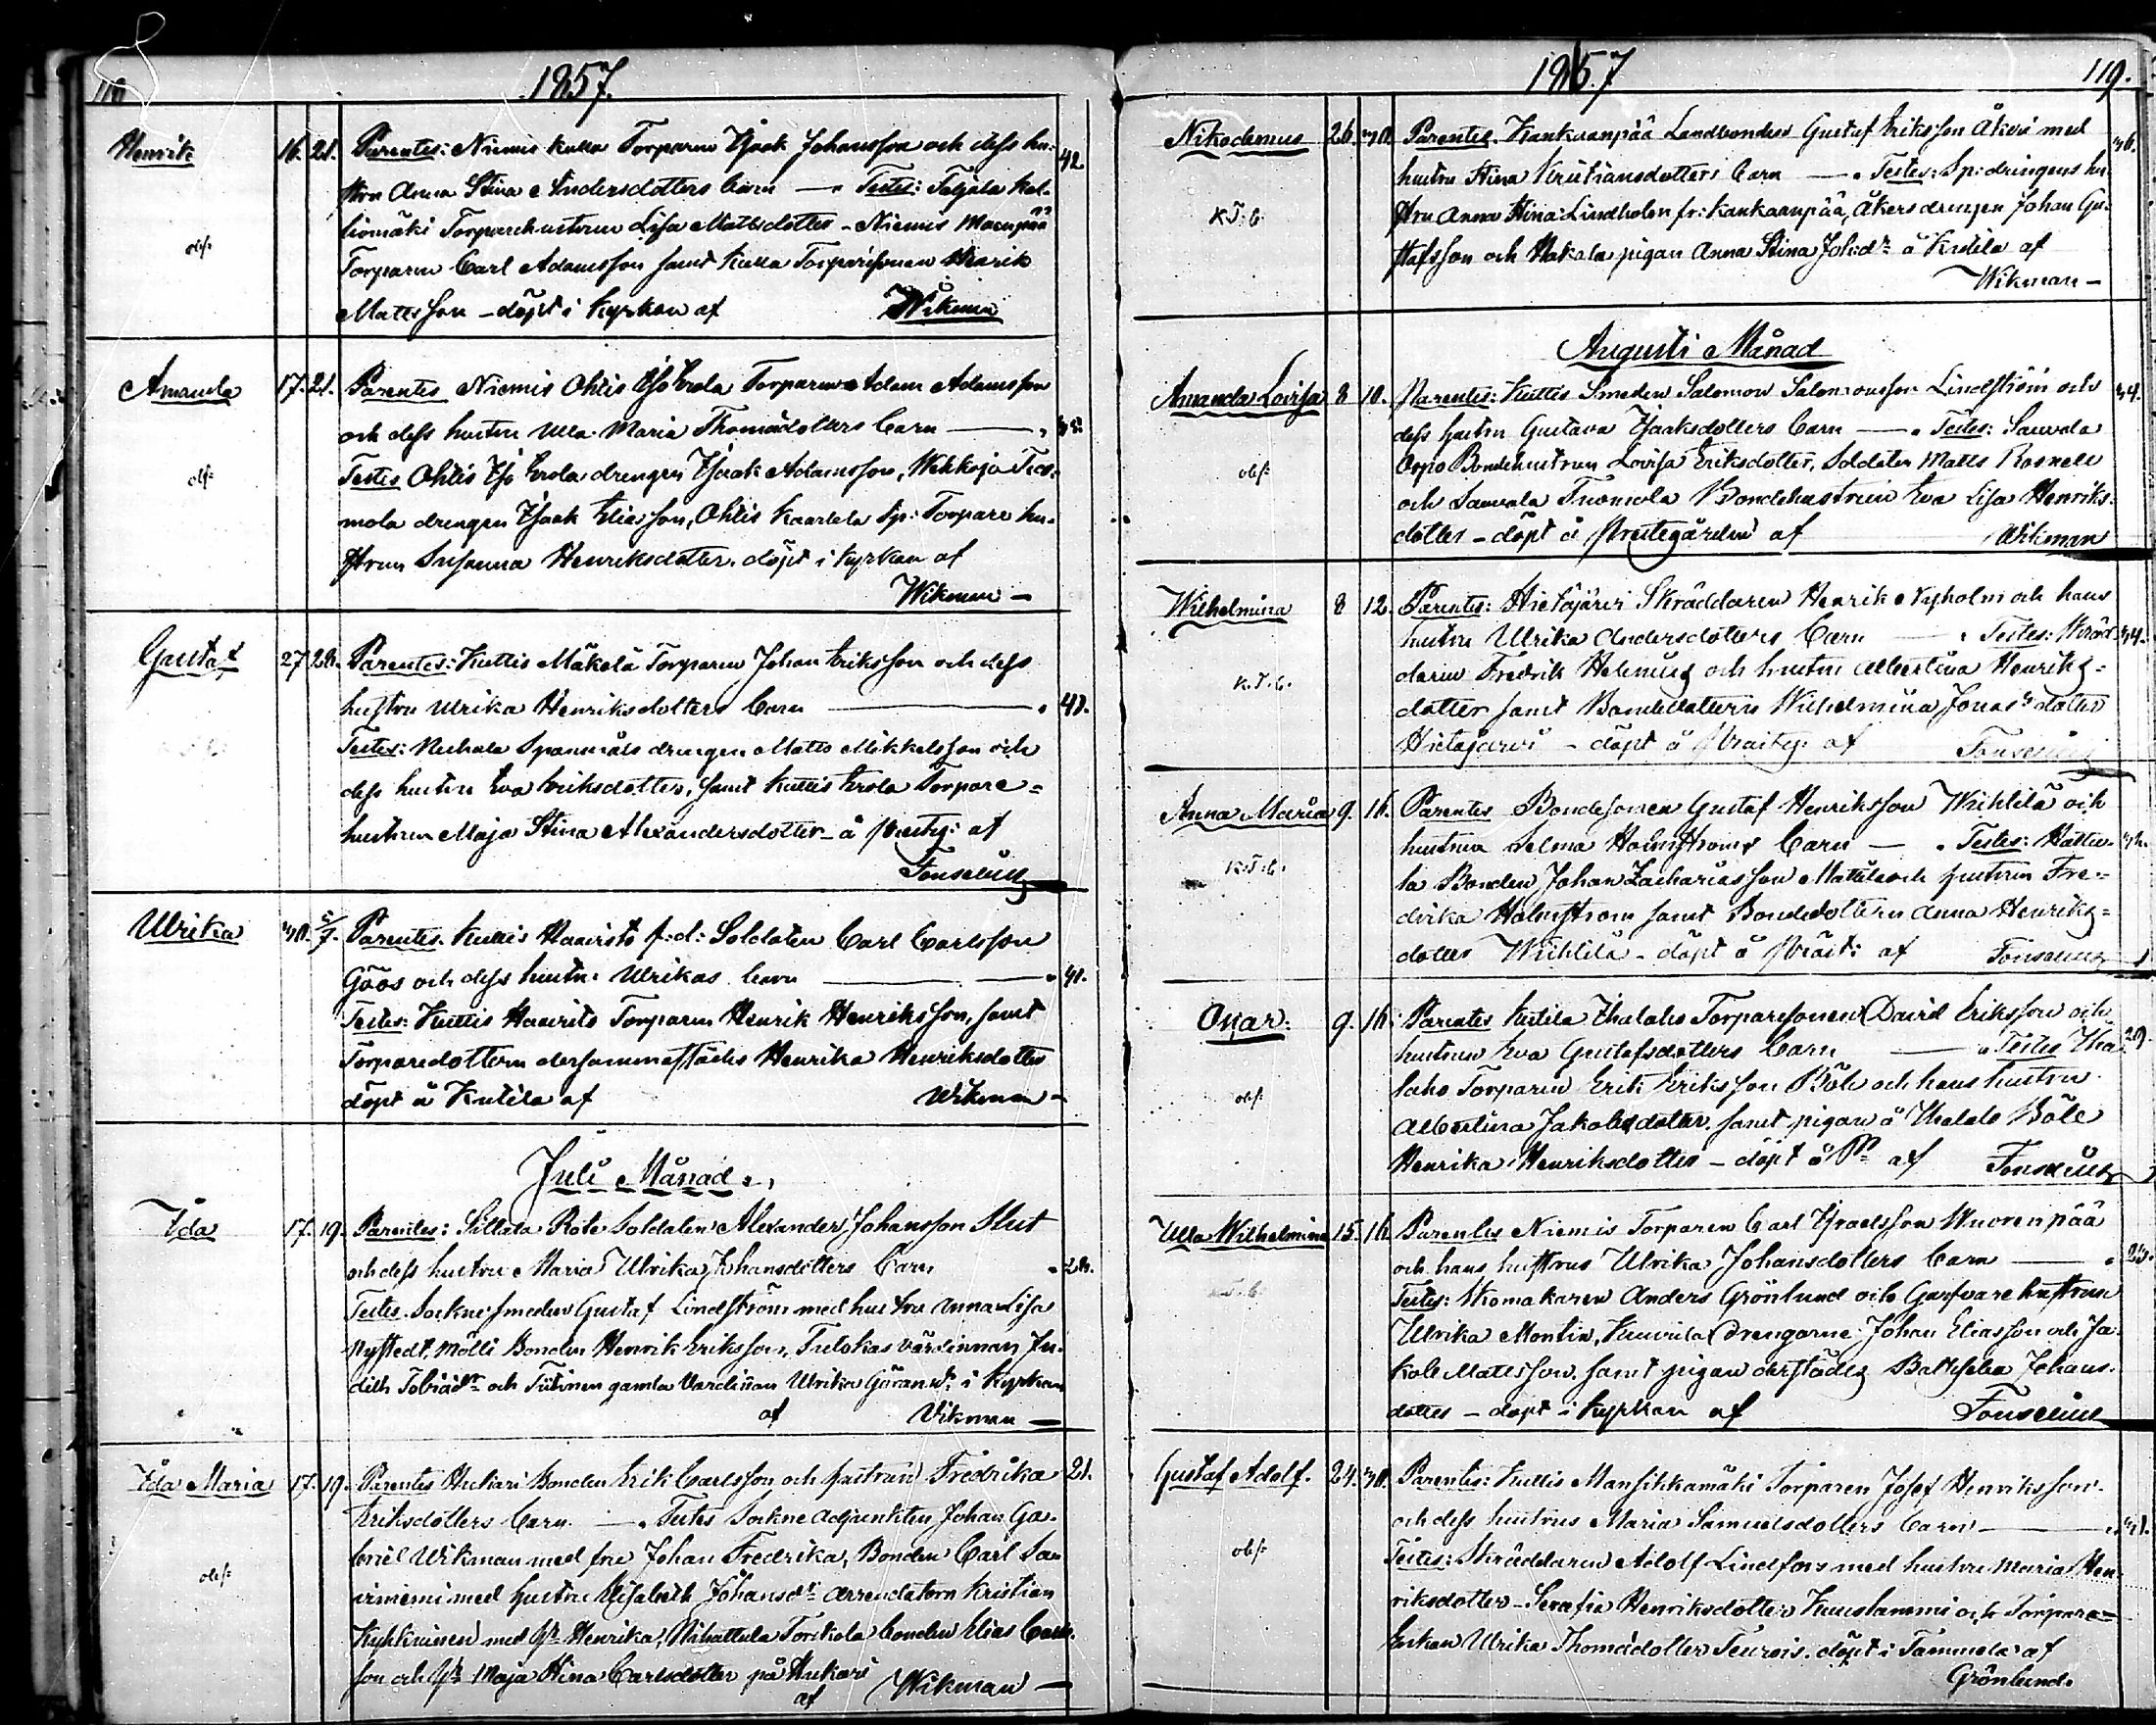 118
1857.
Henrik 16. 21. Parentes: Niemis Kulla Torparen Isaak Johansson och dess hu- 42
stru Anna Stina Andersdotters barn — Testes:
Torparehustrun Lisa Mattsdotter - Niemis
obs:
Torparen Carl Adamsson samt Kulla Torparesonen Henrik
Mattsson - döpt i kyrkan af Wikman
Amanda 17. 21. Parentes Niemis Ohlis Torparen Adam Adamsson
och dess hustru Ulla Maria Thomædotters barn —
obs:
Testes Ohlis drengen Isaak Adamsson,
mola drengen Isaak Eliasson, Ohlis Kaartela Sp: Torpare hu-
strun Susanna Henriksdotter. döpt i kyrkan af
Wikman —
Gustaf 27 28. Parentes: Kullis Mäkelä Torparen Johan Eriksson och dess
hustru Ulrika Henriksdotters barn — 43.
Testes: Spanmåls drengen Matts Mikkelsson och
dess hustru Eva Eriksdotter, samt Kullis Erola Torpare=
hustrun Maja Stina Alexandersdotter - å Prestg: af
Fonselius
Ulrika 30. 5/7. Parentes. Kullis Haavisto f:d: Soldaten Carl Carlsson
Göös och dess hustru Ulrikas barn — 41.
Testes: Kullis Haavisto Torparen Henrik Henriksson, samt
Torparedottern dersammastädes Henrika Henriksdotter
döpt å Kutila af Wikman -
Juli Månad.
Ida 17. 19. Parentes: Sillala Rote Soldaten Alexander Johansson Slut
och dess hustru Maria Ulrika Johansdotters barn 28.
Testes. Sockne smeden Gustaf Lindström med hustru Anna Lisa
Nystedt, Mälli Bonden Henrik Eriksson, värdinnan Ju-
dith Tobiædr och gamla Värdinnan Ulrika Göransdr i kyrkan
af Vikman —
Ida Maria 17. 19. Parentes Huhari Bonden Erik Carlsson och hustrun Fredrika 21.
Eriksdotters barn. — Testes Sockne adjunkten Johan Ga-
briel Wikman med fru Johan Fredrika, Bonden Carl
obs:
med hustru Elisabeth Johansdr arrendatorn Kristian
Kyhkuinen med Henrika, Torikola bonden Elias Carls-
son och Maja Stina Carlsdotter på Huhari
af Wikman —
1857
119.
Nikodemus 26. 30. Parentes. Kankaanpää Landbonden Gustaf Eriksson Åkers med 36.
hustru Stina Kristiansdotters barn — Testes: Sp: drengens hu-
K.T.b. stru Anna Stina Lindholm fr: Kankaanpää, Åkers drengen Johan Gu-
stafsson och Hakala pigan Anna Stina Joh:dr å Kutila af
Wikman —
Augusti Månad
Amanda Lovisa 8 10. Parentes: Kullis Smeden Salomon Salomonsson Lindström och 34.
dess hustru Gustava Isaaksdotters barn — Testes: Sauvala
obs: Orpo Bondehustrun Lovisa Eriksdotter, Soldaten Matts Rosnell
och Sauvala Tuomola Bondehustrun Eva Lisa Henriks-
dotter - döpt å Prestegården af Wikman
Wilhelmina 8 12. Parentes: Hietajärvi Skräddaren Henrik Nyholm och hans
hustru Ulrika Andersdotters barn — Testes: Skräd- 34.
K.T.b. daren Fredrik Helenius och hustru Albertina Henriks=
dotter samt Bondedottern Wilhelmina Jonas dotter
Hietajärvi - döpt å Prestg: af Fonselius
Anna Maria 9. 16. Parentes Bondesonen Gustaf Henriksson Wihtilä och
hustrun Selma Holmströms barn — Testes: Hattu-
K.T.b. la Bonden Johan Zachariasson Mattila och hustrun Fre-
drika Holmström samt Bondedottern Anna Henriks=
dotter Wihtilä - döpt å Prest: af Fonselius
Oskar. 9. 16. Parentes Kutila Ihalaho Torparesonen David Eriksson och
hustrun Eva Gustafsdotters barn — Testes Iha- 29.
laho Torparen Erik Eriksson Böle och hans hustru
obs: Albertina Jakobsdotter. samt pigan å Ihalaho Böle
Henrika Henriksdotter - döpt å Pr: af Fonselius
Ulla Wilhelmina 15. 16. Parentes Niemis Torparen Carl Israelsson Wuorenpää
och hans hustrus Ulrika Johansdotters barn — 25.
Testes: Skomakaren Anders Grönlund och Garfvare hustrun
Ulrika Montin, drengarne Johan Eliasson och Ja-
kob Mattsson. samt pigan derstädes Bathseba Johans-
dotter - döpt i kyrkan af Fonselius
Gustaf Adolf. 24. 30. Parentes: Kullis Mansikkamäki Torparen Josef Henriksson
och dess hustrus Maria Samuelsdotters barn — 31.
obs: Testes: Skräddaren Adolf Lindfors med hustru Maria Hen-
riksdotter - Serafia Henriksdotter Kuuslammi och Torpare-
Enkan Ulrika Thomædotter. döpt i Tammela af
Grönlund.